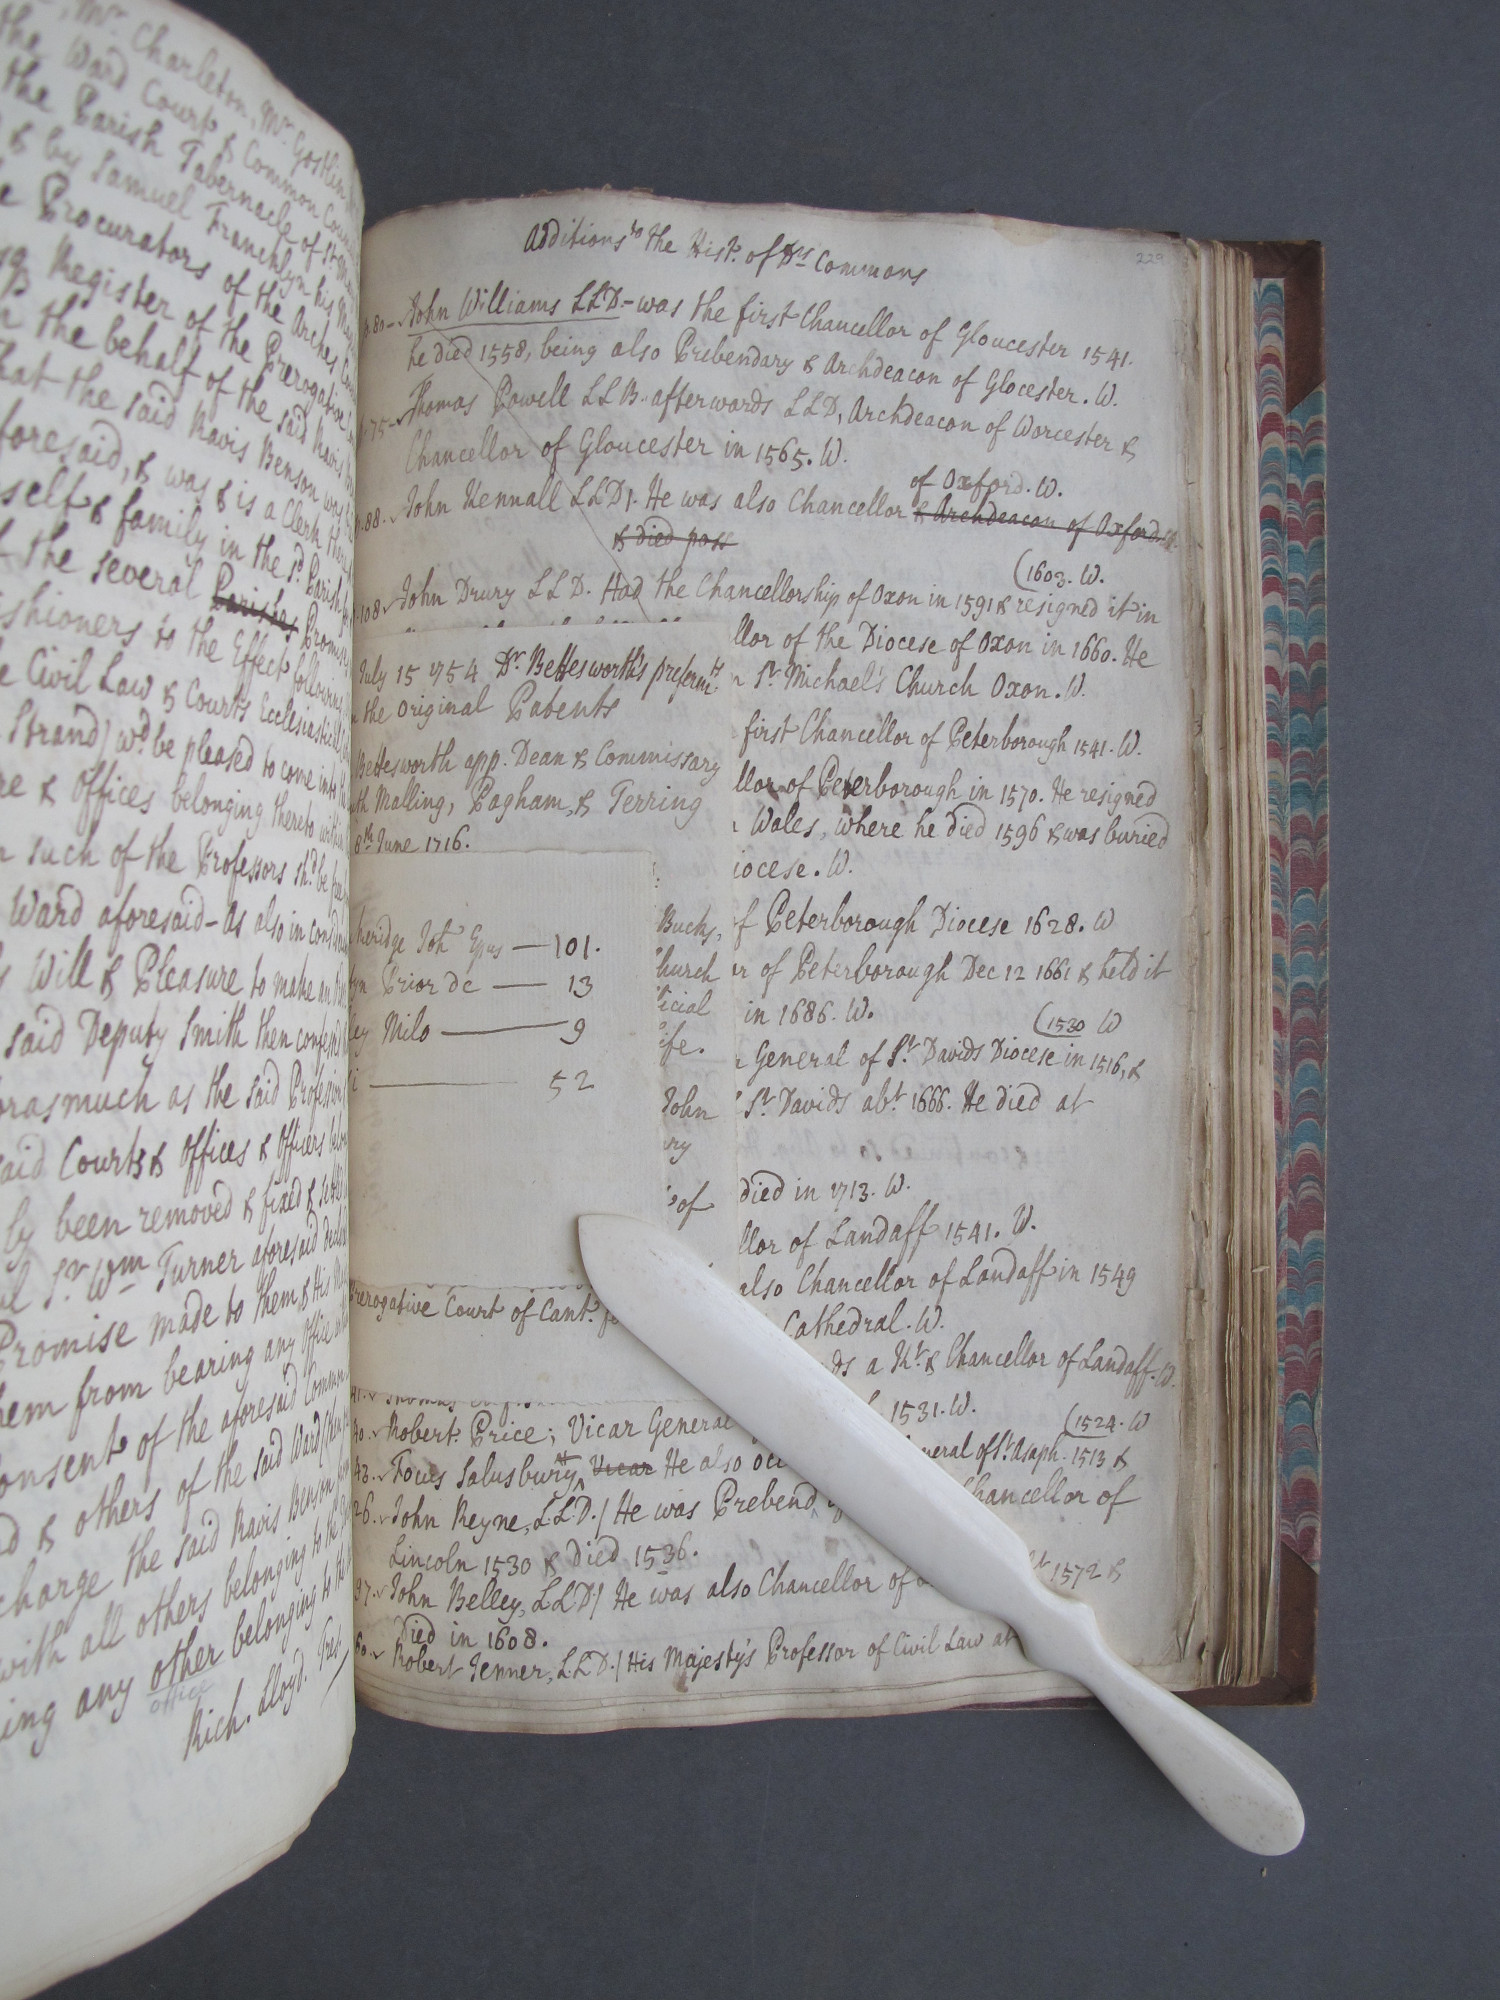 Mr Charleton, Mr Gostlin
the Ward Court & Common
the Parish Tabernacle of St
& by Samuel Francklyn his
Procurators of the Arches
Register of the Prerogative
the behalf of the said Ravis
that the said Ravis Benson was
foresaid, & was & is a Clerk
self & family in the sd. Parish
the several Parishes Promise
shioners to the Effect following
Civil Law & Courts Ecclesiastical
Strand) wd. be pleased to come into the
& Offices belonging thereto within
such of the Professors shd. be
Ward aforesaid - As also in
Will & Pleasure to make an
said Deputy Smith then
orasmuch as the said Profession
said Courts & Offices & Officers
ly been removed & fixed &
Sr. Wm Turner aforesaid
Promise made to them & His
hem from bearing any Office
onsent of the aforesaid Common
& others of the said Ward
charge the said Ravis Benson
with all others belonging to the
ing any other belonging to the
office
Rich. Lloyd. Tres.
229
Additions to the Hist. of Drs Commons
p. 80 - John Williams LLD. - was the first Chancellor of Gloucester 1541.
he died 1558, being also Prebendary & Archdeacon of Glocester. W.
75 - Thomas Powell LLB. afterwards LLD, Archdeacon of Worcester &
Chancellor of Gloucester in 1565. W.
of Oxford. W.
88. John Kennall LLD). He was also Chancellor & Archdeacon of Oxford.
& died poss
(1603. W.
108 John Drury LLD. Had the Chancellorship of Oxon in 1591 & resigned it in
llor of the Diocese of Oxon in 1660. He
St. Michael's Church Oxon. W.
first Chancellor of Peterborough 1541. W.
llor of Peterborough in 1570. He resigned
Wales, where he died 1596 & was buried
iocese. W.
f Peterborough Diocese 1628. W
r of Peterborough Dec 12 1661 & held it
in 1686. W.
(1530 W
General of St. Davids Diocese in 1516, &
St. Davids abt. 1666. He died at
died in 1713. W.
llor of Landaff 1541. W.
also Chancellor of Landaff in 1549
Cathedral. W.
ds a Kt. & Chancellor of Landaff. W.
July 15 1754 Dr. Bettesworth's preferm.ts
the original Patents
Bettesworth app. Dean & Commissary
th Malling, Pagham, & Terring
8th June 1716.
Bucks,
hurch
icial
ife.
John
ry
of
heridge Joh' Epus — 101.
Prior dc — 13
ey Milo — 9
i — 52
Prerogative Court of Cant.
41.
1531. W.
(1524. W
40. Robert Price; Vicar General
43. Foucs Salusbury Vicar He also
neral of St. Asaph. 1513 &
26. John Reyne, LLD.) He was Prebend
Chancellor of
Lincoln 1530 & died 1536.
97. John Belley, LLD) He was also Chancellor of
1572 &
died in 1608.
60. Robert Jenner, LLD.) His Majesty's Professor of Civil Law at